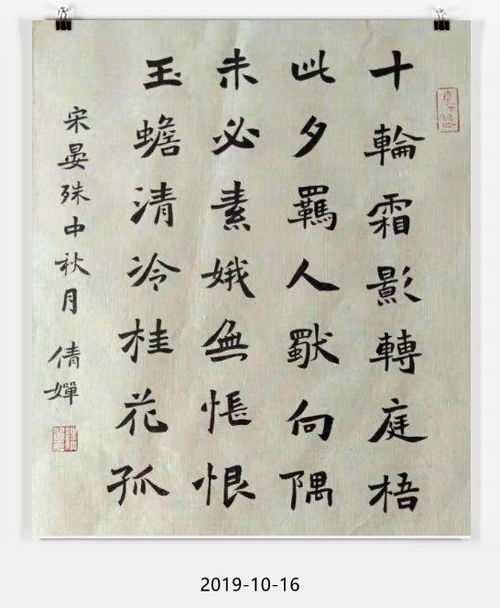 十輪霜影轉庭梧
此夕羈人獨向隅
未必素娥無悵恨
玉蟾清冷桂花孤
宋晏殊中秋月 倩嬋
2019-10-16